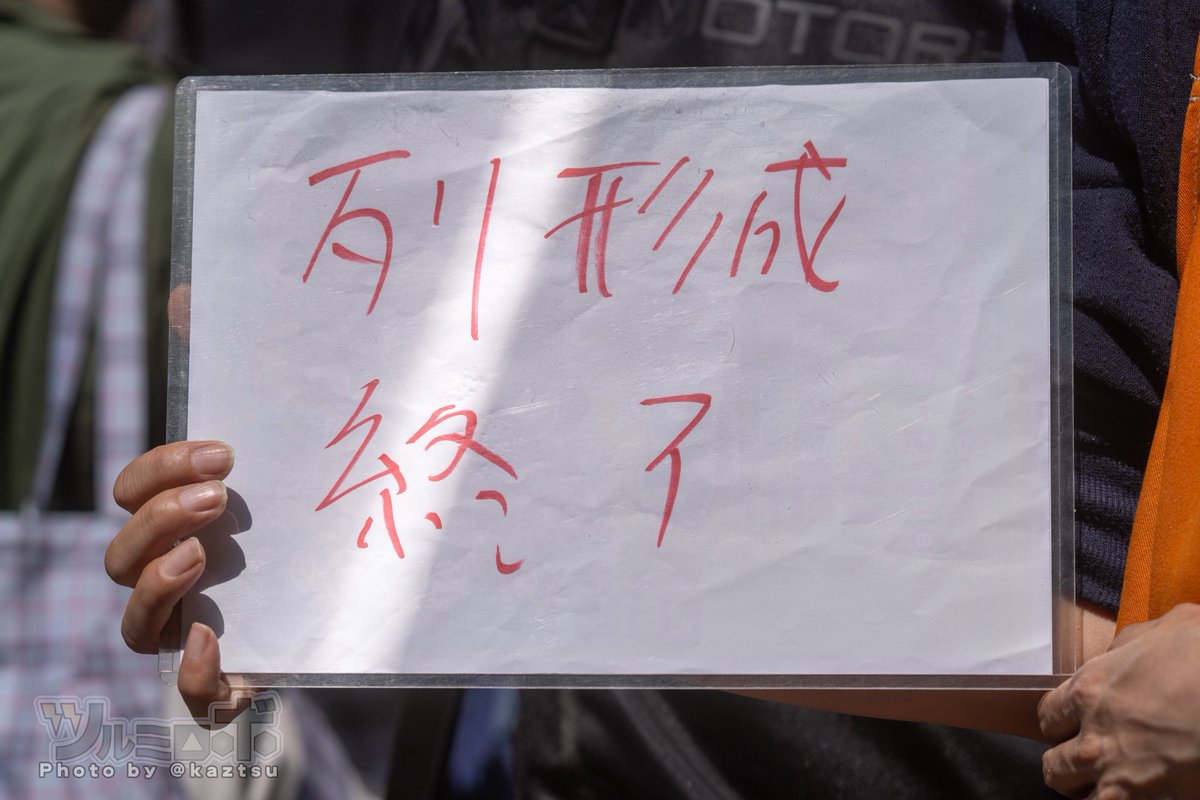 OTORH
列形成
終了
Wツルミロボ
Photo by @kaztsu